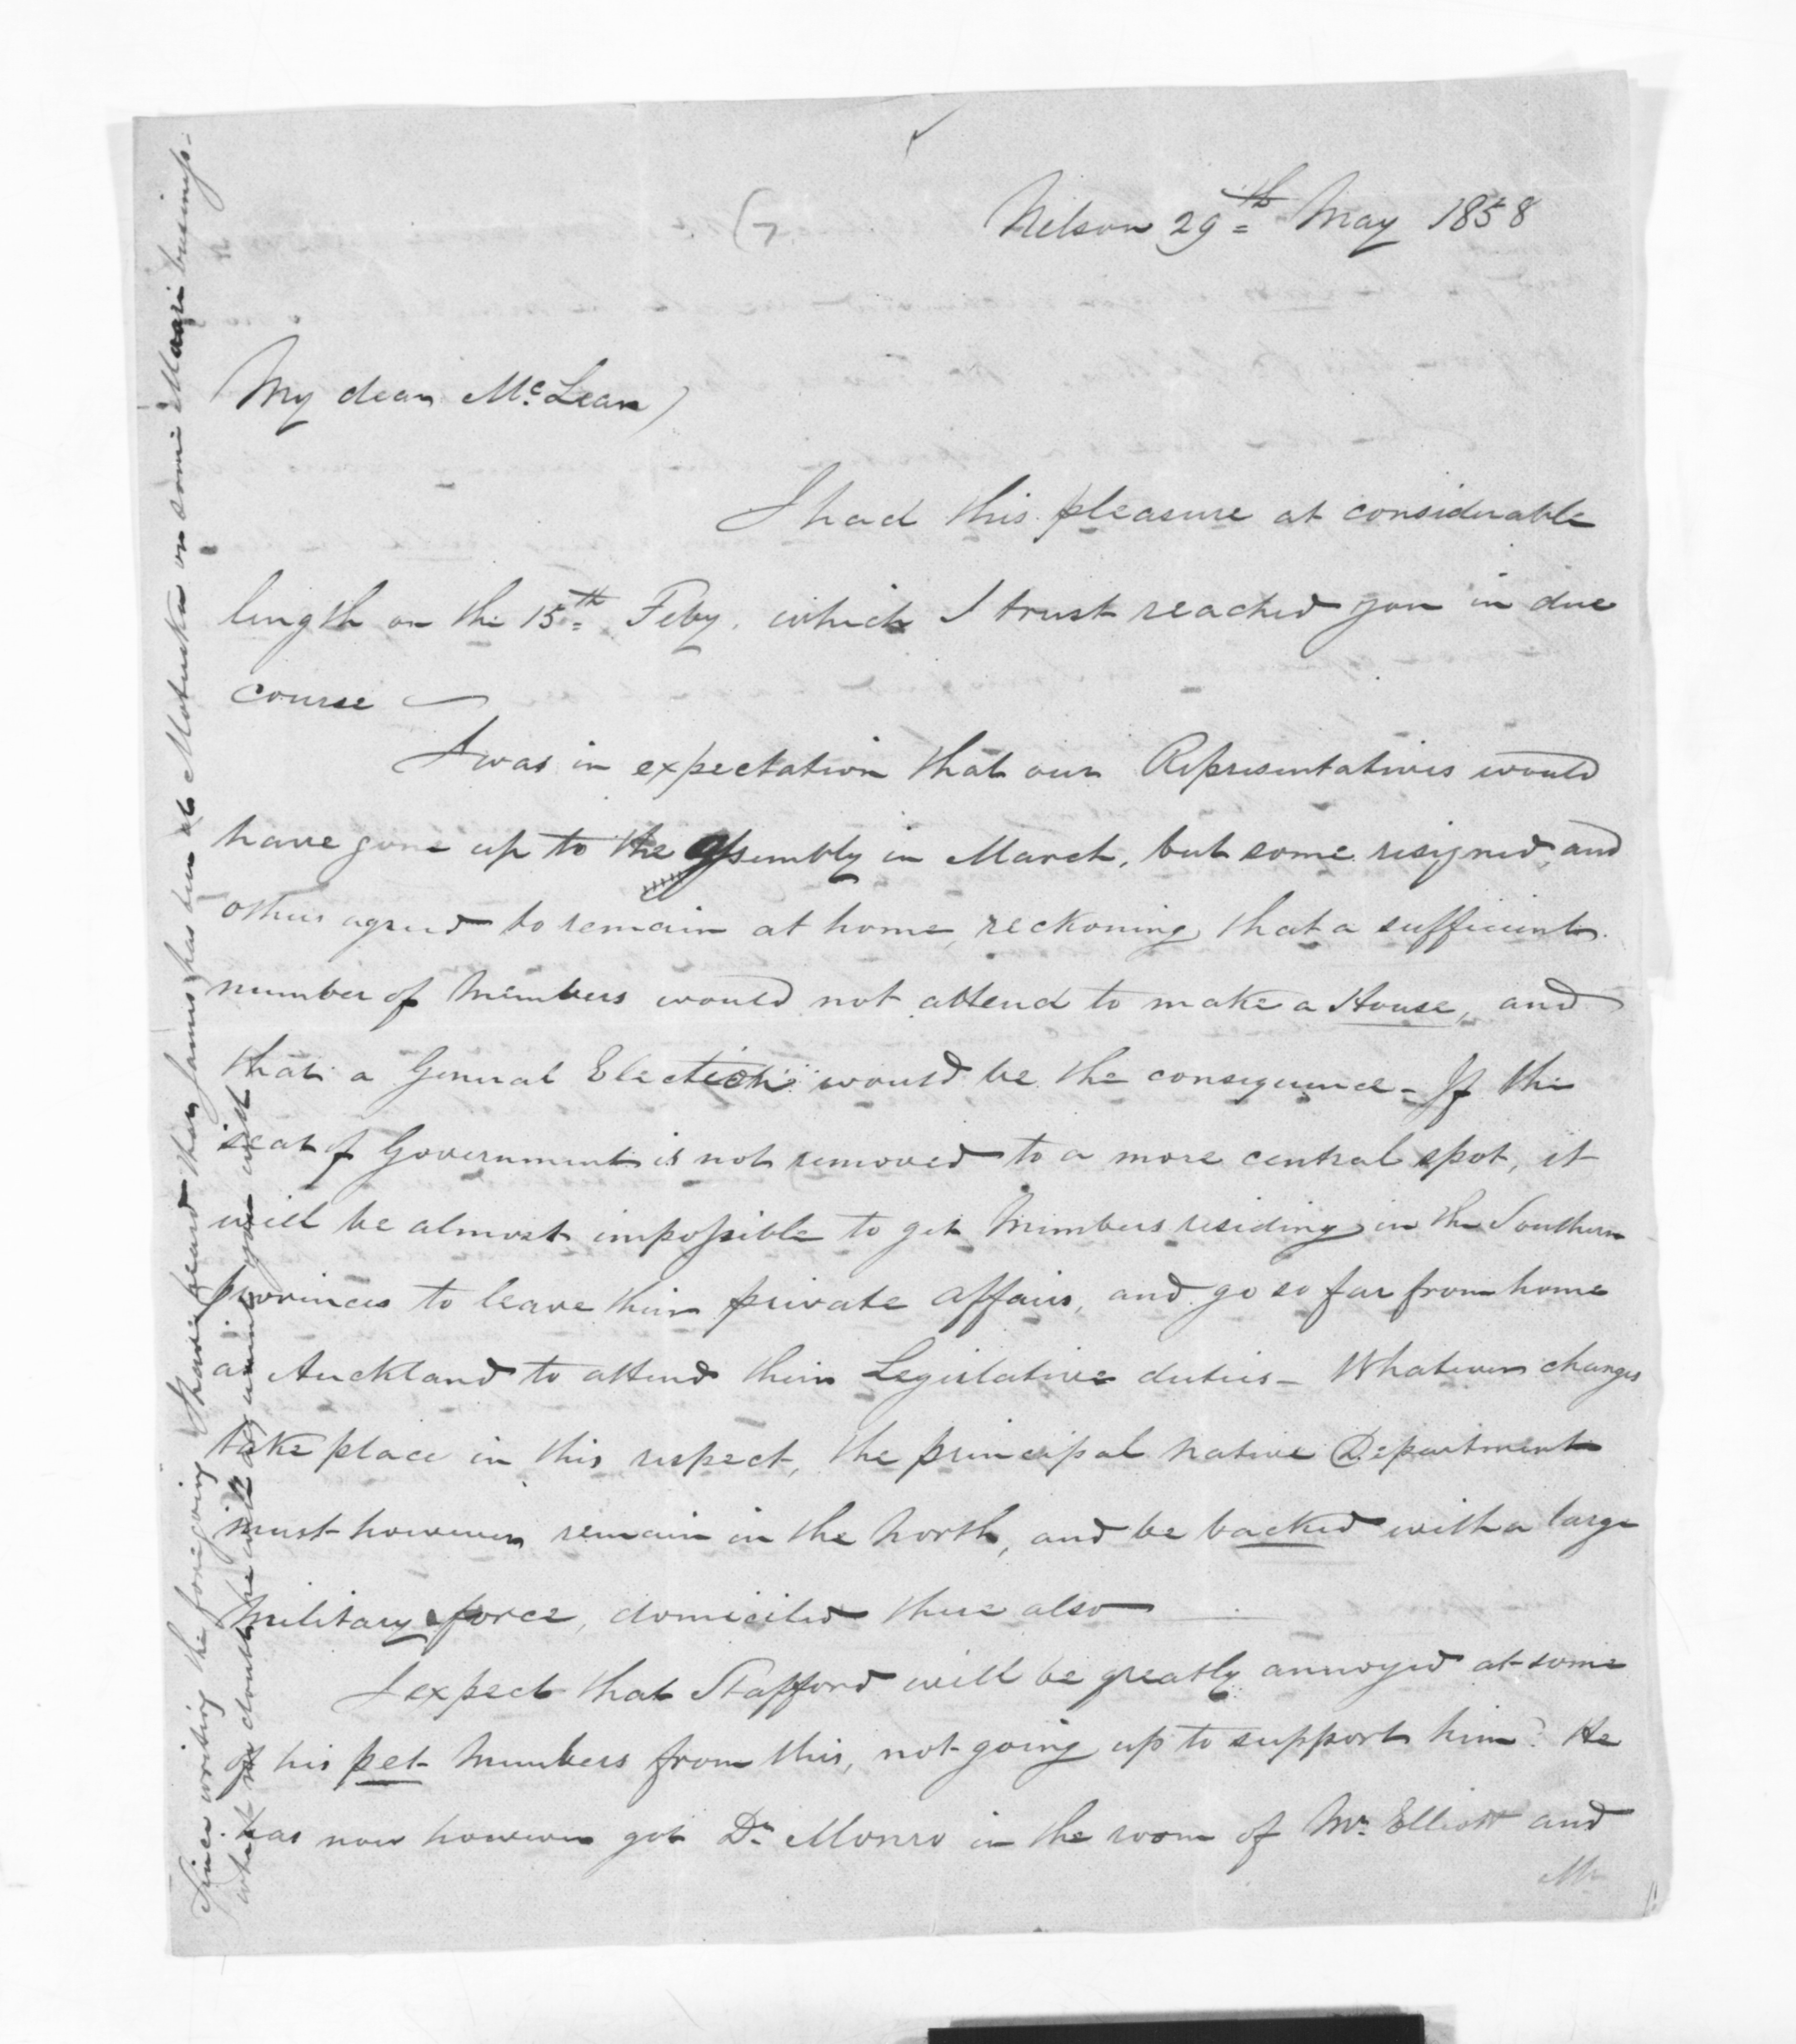 Nelson 29th May 1858
My dear McLean,
I had this pleasure at considerable
length on the 15th Feby. which I trust reached you in due
course —
I was in expectation that our Representatives would
have gone up to the Assembly in March, but some resigned, and
others agreed to remain at home, reckoning that a sufficient
number of Members would not attend to make a House, and
that a General Election would be the consequence - If the
seat of Government is not removed to a more central spot, it
will be almost impossible to get Members residing in the Southern
provinces to leave their private affairs, and go so far from home
as Auckland to attend their Legislative duties - Whatever changes
take place in this respect, the principal native Department
must however remain in the North, and be backed with a large
Military force, domiciled there also —
I expect that Stafford will be greatly annoyed at some
of his pet Members from this, not going up to support him. He
has now however got Dr. Monro in the room of Mr. Elliott and
Mr
Since writing the foregoing I have heard that James has been at Motueka on some Maori business -
which no doubt he will acquaint you with